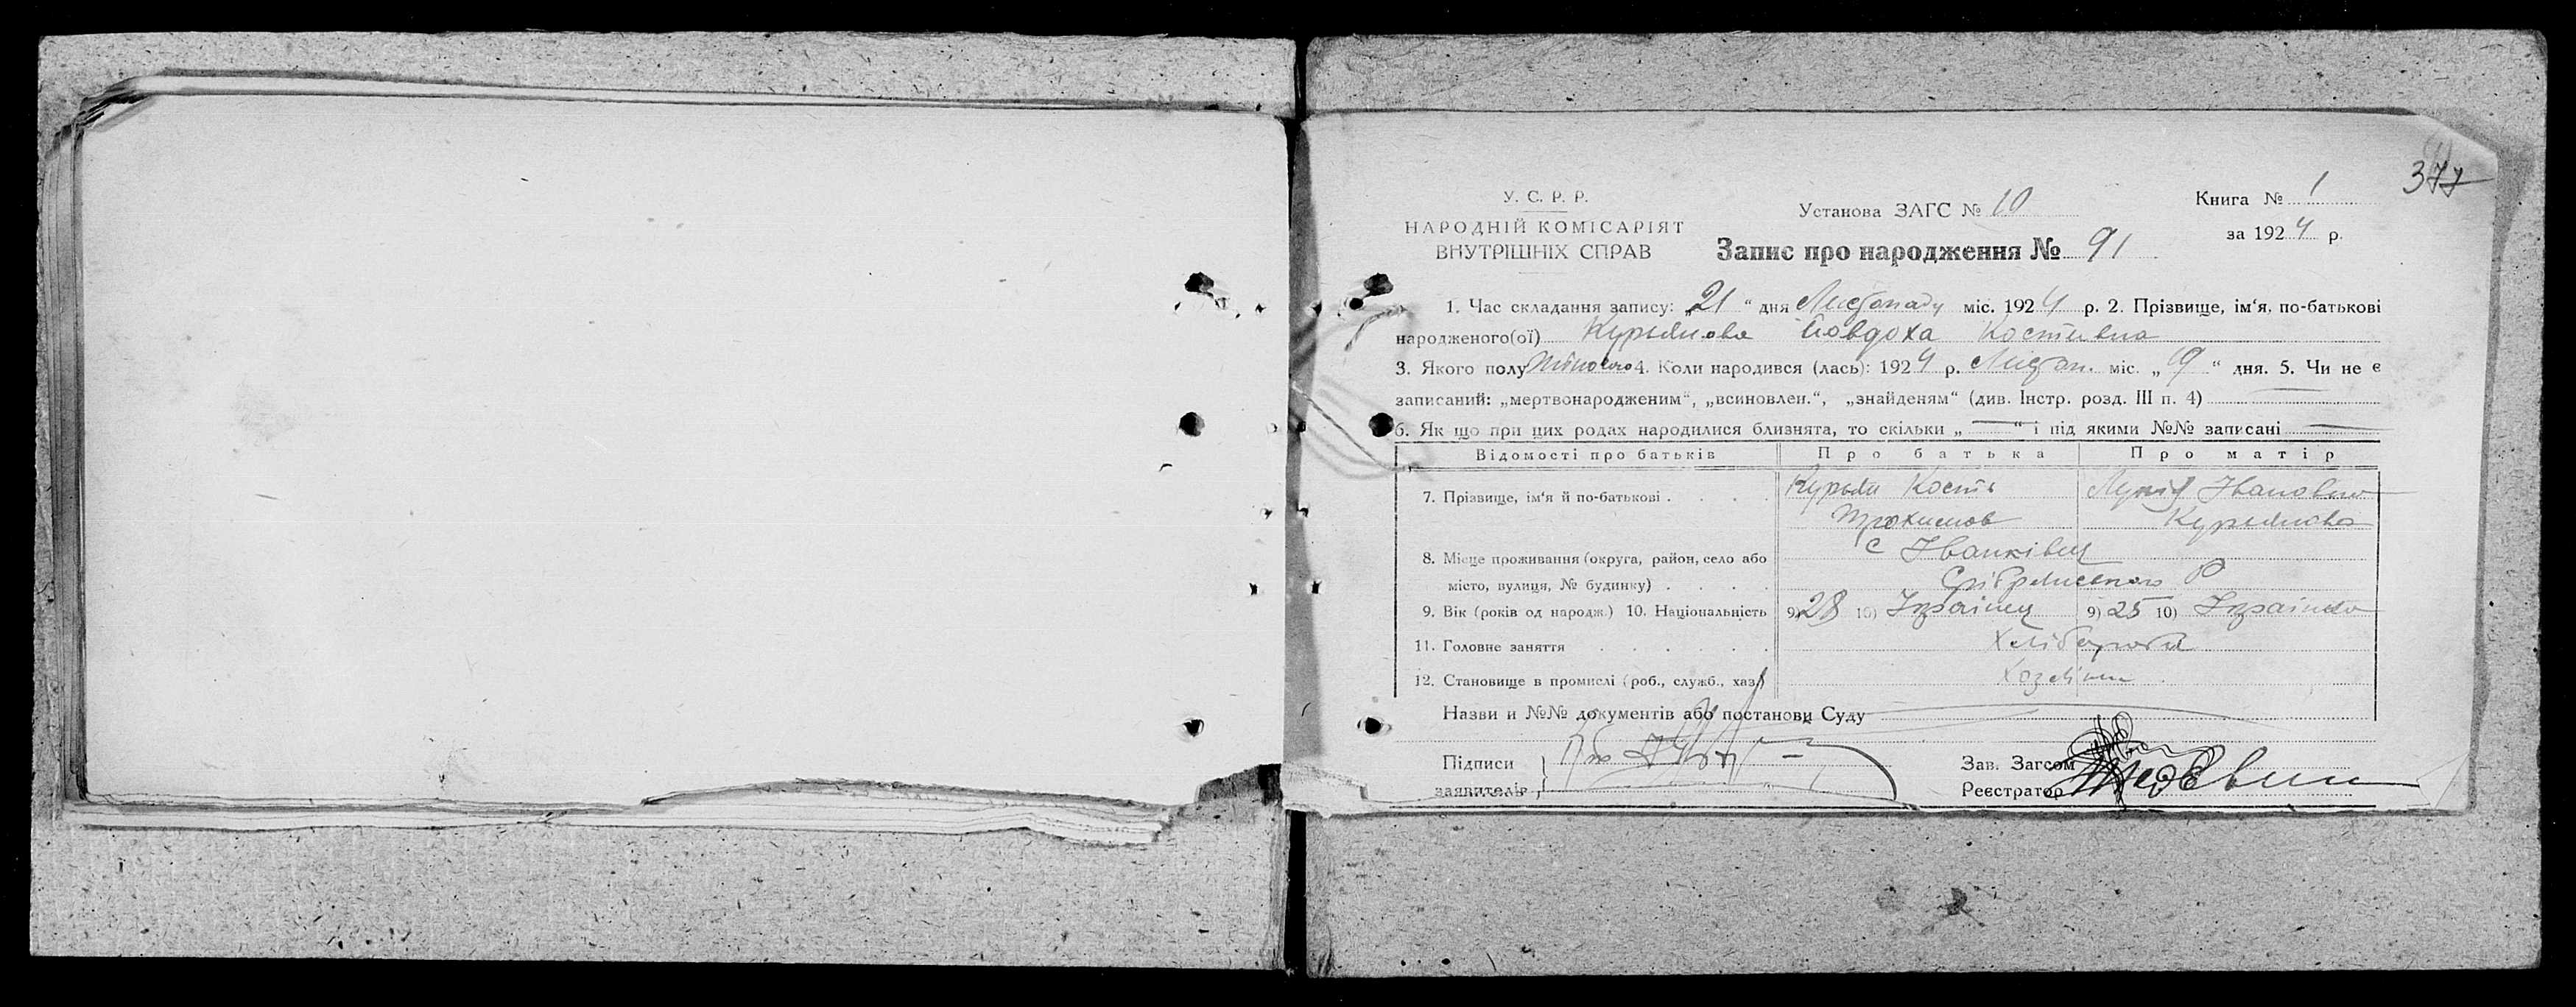 377
У. С. Р. Р.
НАРОДНІЙ КОМІСАРІЯТ
ВНУТРІШНІХ СПРАВ
Установа ЗАГС № 10
Книга № 1
за 1924 р.
Запис про народження № 91
1. Час складання запису: „21“ дня Листопаду міс. 1924 р. 2. Прізвище, ім‘я, по-батькові
народженого(ої) Явдоха Костивна
3. Якого полу Жіночого 4. Коли народився (лась): 1924 р. Листоп. міс. „19“ дня. 5. Чи не є
записаний: „мертвонародженим“, „всиновлен.“, „знайденям“ (див. Інстр. розд. III п. 4)
6. Як що при цих родах народилися близнята, то скільки „—“ і під якими №№ записані —
Відомості про батьків Про батька Про матір
7. Прізвище, ім‘я й по-батькові Кость Івановна
Трохимов
8. Місце проживання (округа, район, село або с Іванківці
місто, вулиця, № будинку) Р
9. Вік (років од народж.) 10. Національність 9) 28 10) Українец 9) 25 10) Українка
11. Головне заняття Хлібороби
12. Становище в промислі (роб., служб., хаз.)
Назви и №№ документів або постанови Суду
Підписи
заявителів
Зав. Загсом
Реєстратор